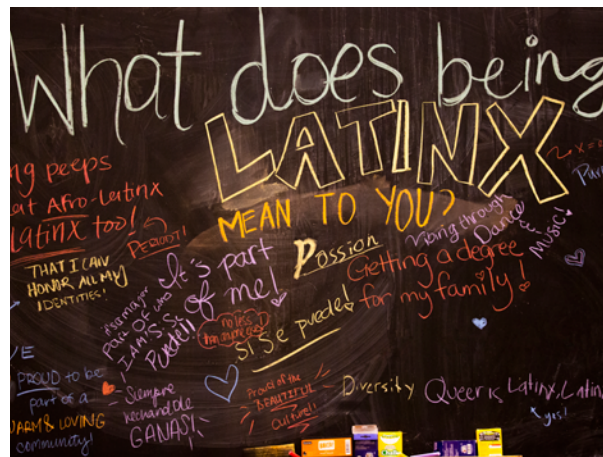 What does being
LATINX
MEAN TO YOU?
ng peeps
at Afro-Latinx
Latinx too!
PERIODT!
THAT I CAN
HONOR ALL MY
IDENTITIES!
It's part
of me!
It's a major
PART OF who
I AM! Si Se
Puede!!
Passion
Vibing through
Dance
&
MUSIC!
Getting a degree
for my family!
no less
than
Si Se puede!
PROUD to be
part of a
WARM & LOVING
community!
Siempre
hechandole
GANAS!
Proud of the
BEAUTIFUL
Culture!
Diversity
Queer is Latinx, Latin
yes!